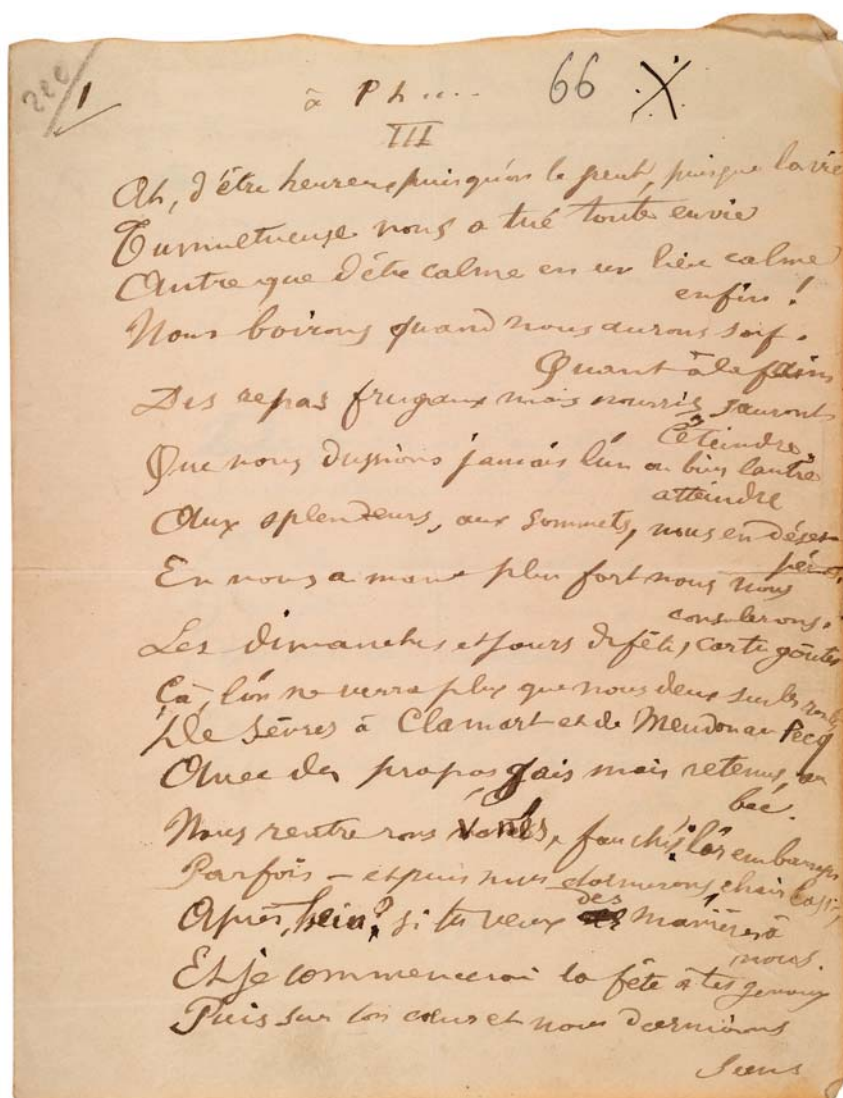 1
à Ph....
66 X
III
Ah, d'être heureux puisqu'on le peut, puisque la vie
Tumultueuse nous a tué toute envie
Autre que d'être calme en un lieu calme
enfin !
Nous boirons quand nous aurons soif.
Quant à la faim
Des repas frugaux mais nourris sauront
l'éteindre.
Que nous dussions jamais l'un ou bien l'autre
atteindre
Aux splendeurs, aux sommets, nous en déses-
pérons.
En nous aimant plus fort nous nous
consolerons.
Les dimanches et jours de fête, car tu goûtes
Çà, l'on ne verra plus que nous deux sur les routes
De Sèvres à Clamart et de Meudon au Pecq
Avec des propos gais mais retenus, au
bec.
Nous rentrerons vannés, fauchés, l'or embarrasse
Parfois – et puis nous dormirons, chair lasse,
Après, hein? si tu veux des manières à
nous.
Et je commencerai la fête à tes genoux
Puis sur ton cœur et nous dormirons
sans